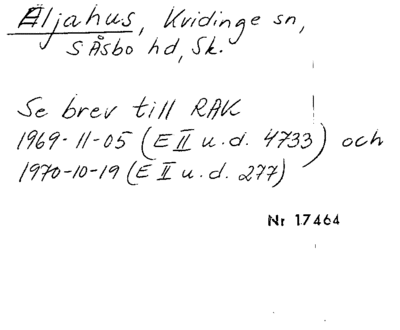 Aljahus, Kvidinge sn,
S Åsbo hd, Sk.
Se brev till RAK
1969-11-05 (E II u.d. 4733) och
1970-10-19 (E II u.d. 277)
Nr 17464